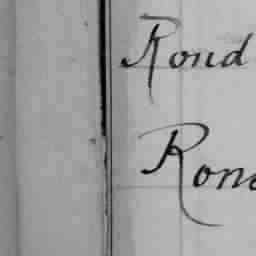 Rond
Rond